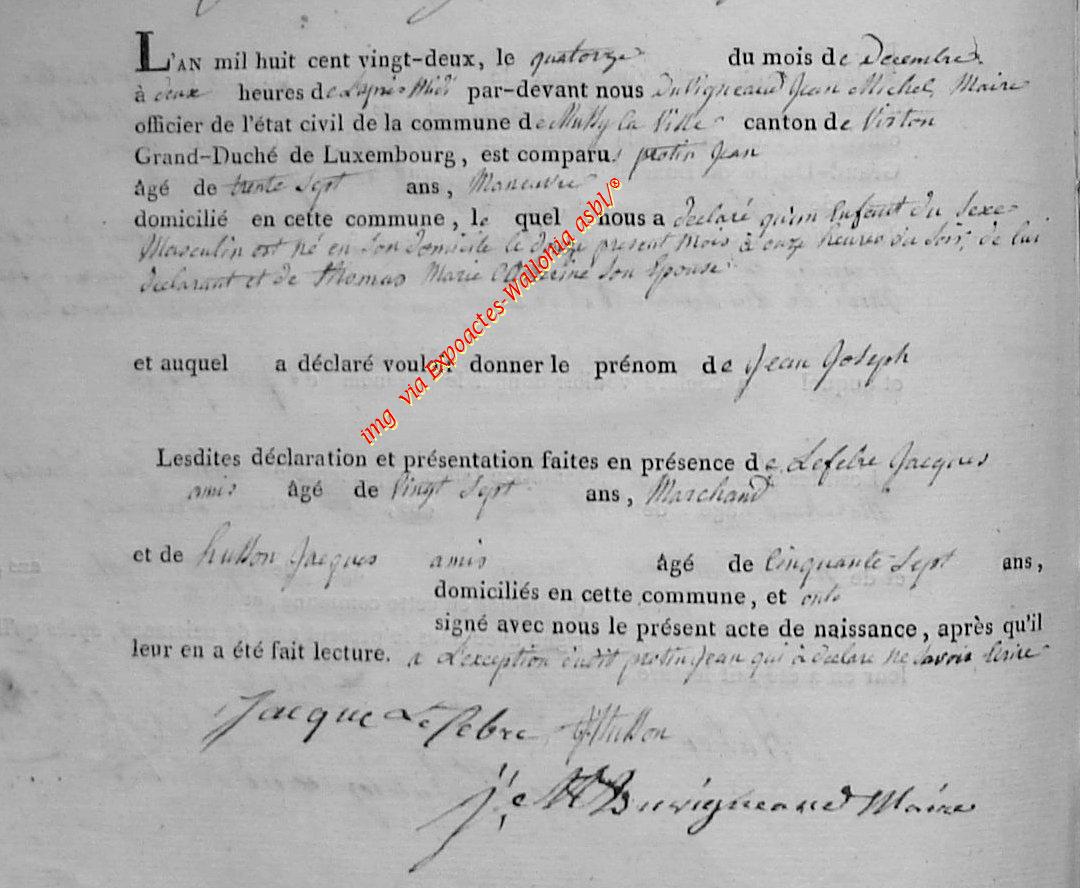 L'AN mil huit cent vingt-deux, le quatorze du mois de Decembre
à deux heures de Laprès Midi par-devant nous Duvigneaud Jean Michel, Maire
officier de l'état civil de la commune de Mussy la Ville canton de Virton
Grand-Duché de Luxembourg, est comparu protin Jean
âgé de trente Sept ans, Manœuvre
domicilié en cette commune, le quel nous a déclaré qu'un Enfant du Sexe
Masculin est né en Son domicile le du present mois à onze heures du Soir, de lui
declarant et de Thomas Marie Catherine Son Epouse
et auquel a déclaré vouloir donner le prénom de Jean Joseph
Lesdites déclaration et présentation faites en présence de Lefebre Jacques
amis âgé de Vingt Sept ans, Marchand
et de husson Jacques amis âgé de Cinquante-Sept ans,
domiciliés en cette commune, et ont
signé avec nous le présent acte de naissance, après qu'il
leur en a été fait lecture. a L'exception dudit protin Jean qui à déclaré ne Savoir Ecrire
Jacque Le Febre Husson
Duvigneaud Maire
img via Expoactes-Wallonia asbl/®